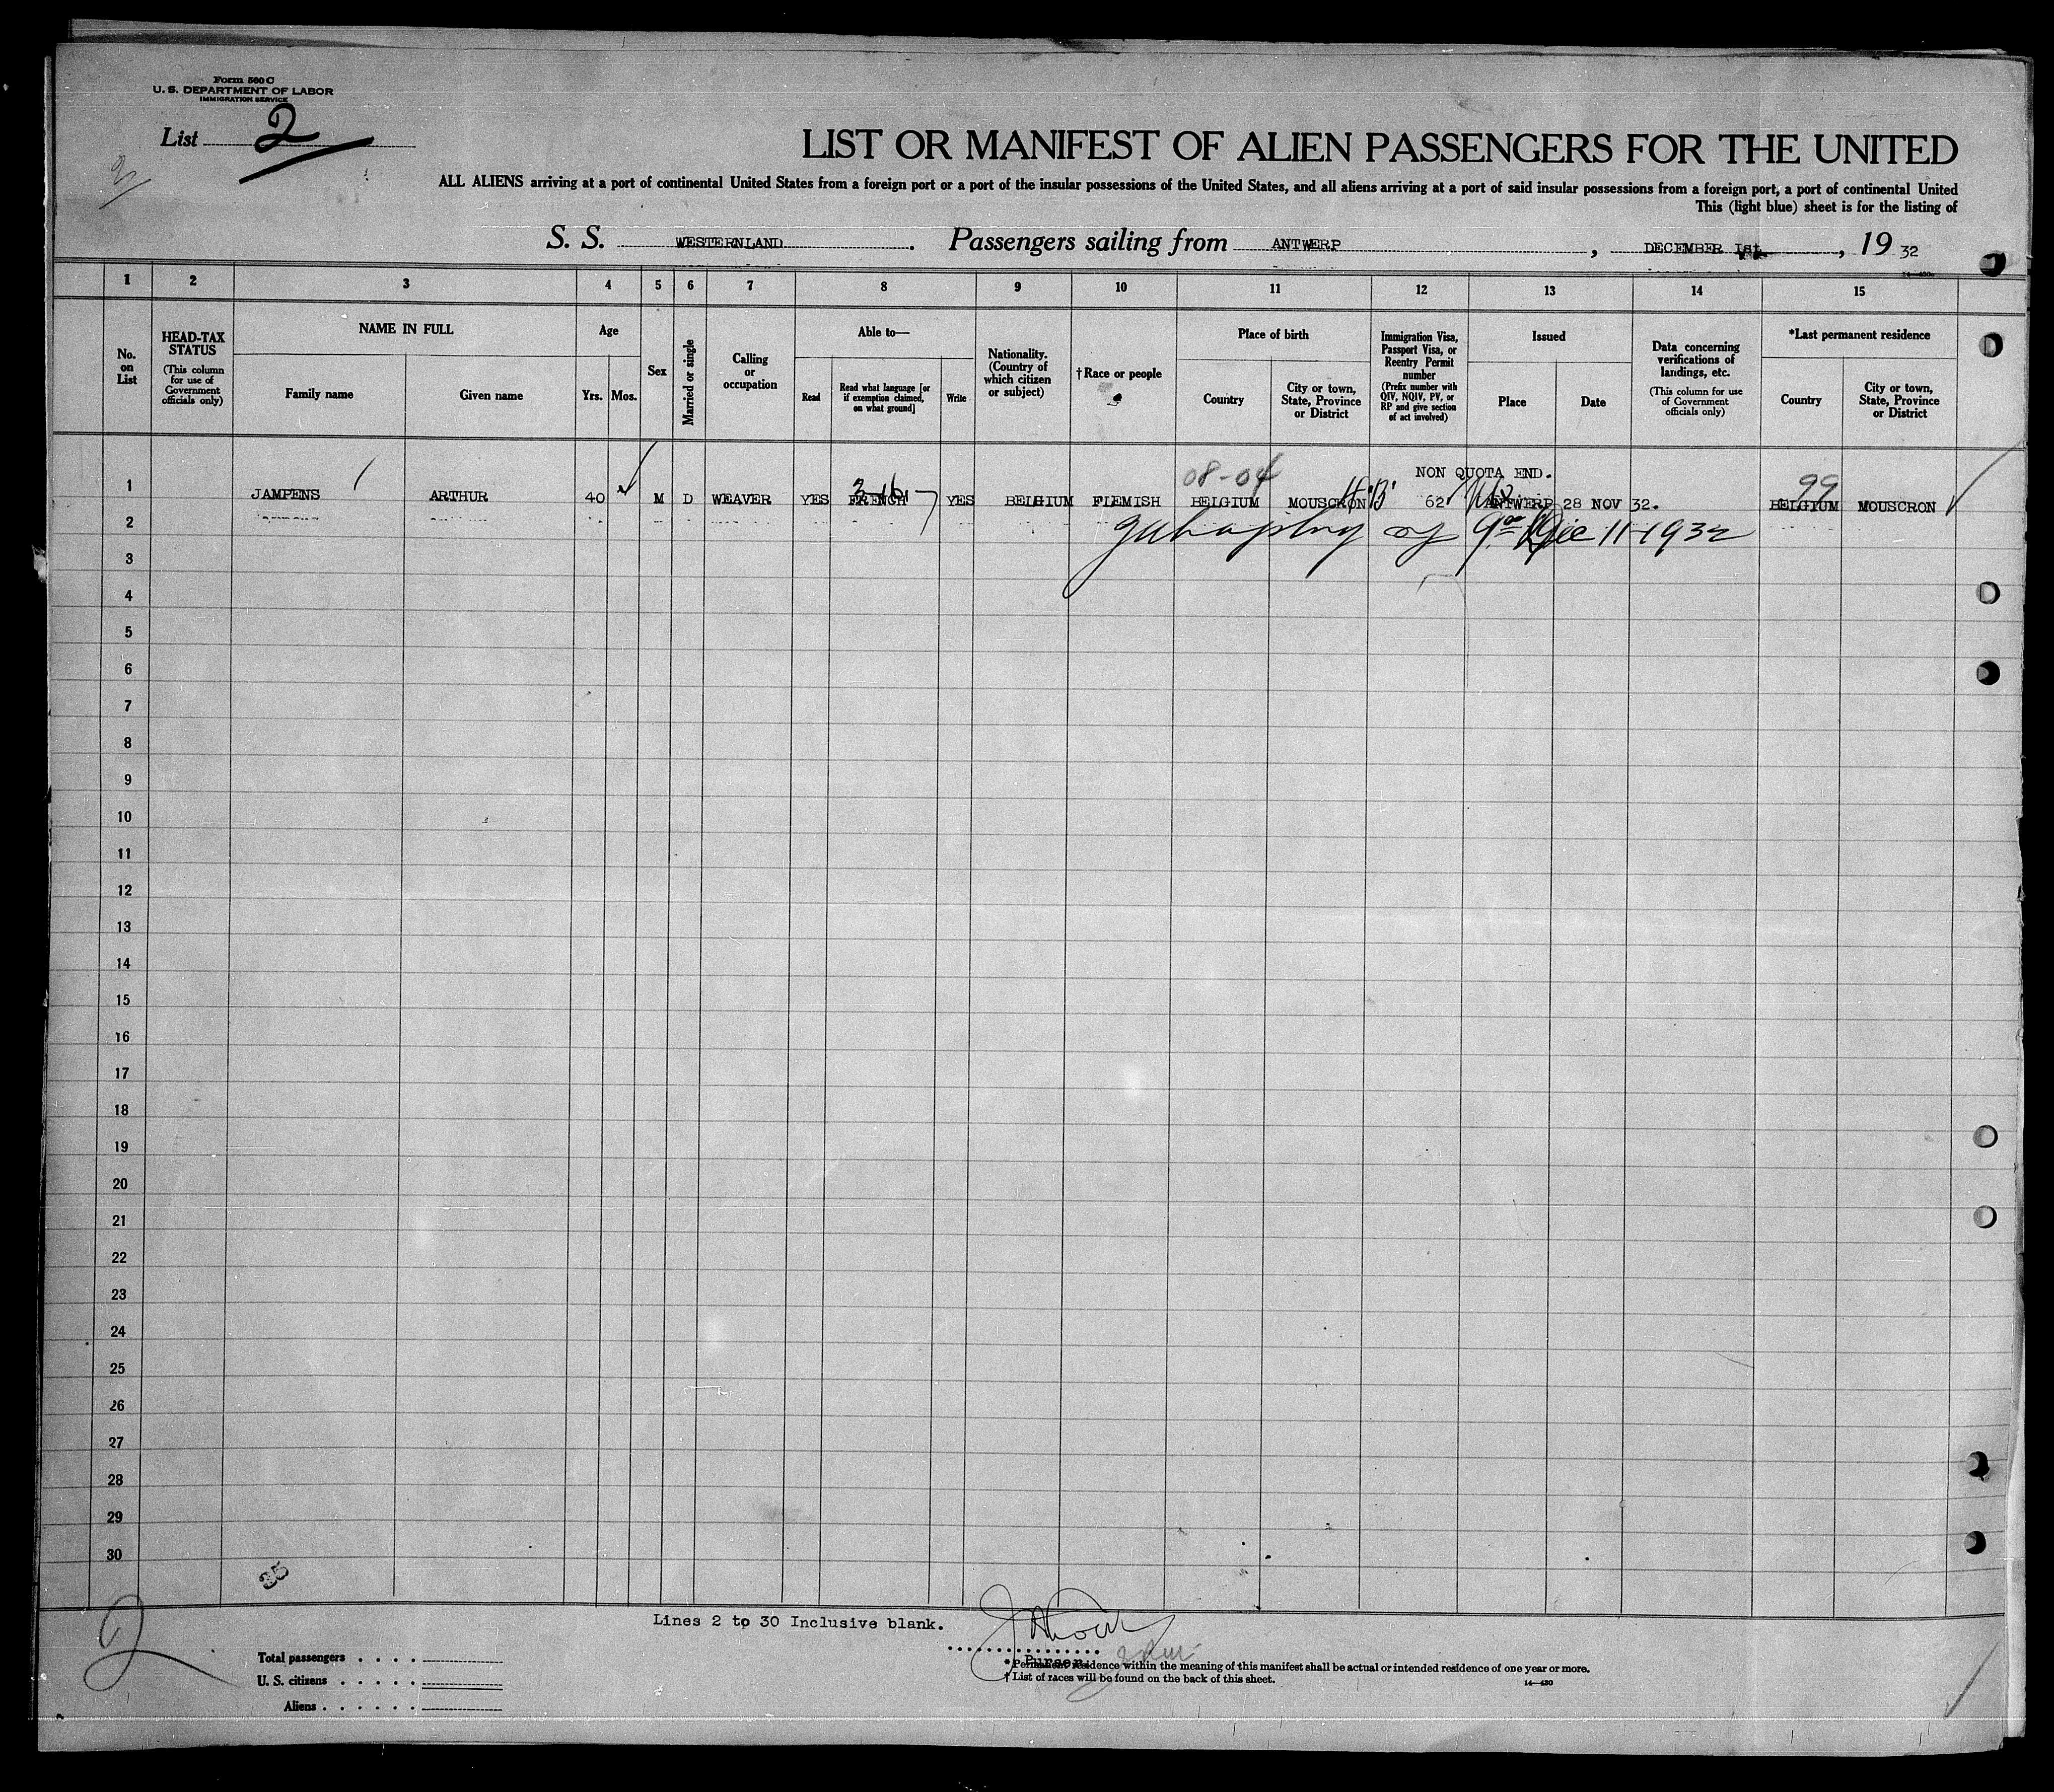 Form 500 C
U. S. DEPARTMENT OF LABOR
IMMIGRATION SERVICE
List 2
LIST OR MANIFEST OF ALIEN PASSENGERS FOR THE UNITED
ALL ALIENS arriving at a port of continental United States from a foreign port or a port of the insular possessions of the United States, and all aliens arriving at a port of said insular possessions from a foreign port, a port of continental United
This (light blue) sheet is for the listing of
S. S. WESTERNLAND. Passengers sailing from ANTWERP, DECEMBER 1st, 19 32
1 2 3 4 5 6 7 8 9 10 11 12 13 14 15
No. on List
HEAD-TAX STATUS
(This column for use of Government officials only)
NAME IN FULL
Family name
Given name
Age
Yrs. Mos.
Sex
Married or single
Calling or occupation
Able to—
Read
Read what language [or if exemption claimed, on what ground]
Write
Nationality. (Country of which citizen or subject)
†Race or people
Place of birth
Country
City or town, State, Province or District
Immigration Visa, Passport Visa, or Reentry Permit number
(Prefix number with QIV, NQIV, PV, or RP and give section of act involved)
Issued
Place
Date
Data concerning verifications of landings, etc.
(This column for use of Government officials only)
*Last permanent residence
Country
City or town, State, Province or District
08-04 NON QUOTA END. 99
1 JAMPENS ARTHUR 40 M D WEAVER YES FRENCH YES BELGIUM FLEMISH BELGIUM MOUSCRON 62 ANTWERP 28 NOV 32. BELGIUM MOUSCRON
2
Dec 11-1932
3
4
5
6
7
8
9
10
11
12
13
14
15
16
17
18
19
20
21
22
23
24
25
26
27
28
29
30
35
2
Lines 2 to 30 Inclusive blank.
Purser.
Total passengers
U. S. citizens
Aliens
* Permanent residence within the meaning of this manifest shall be actual or intended residence of one year or more.
† List of races will be found on the back of this sheet.
14—430